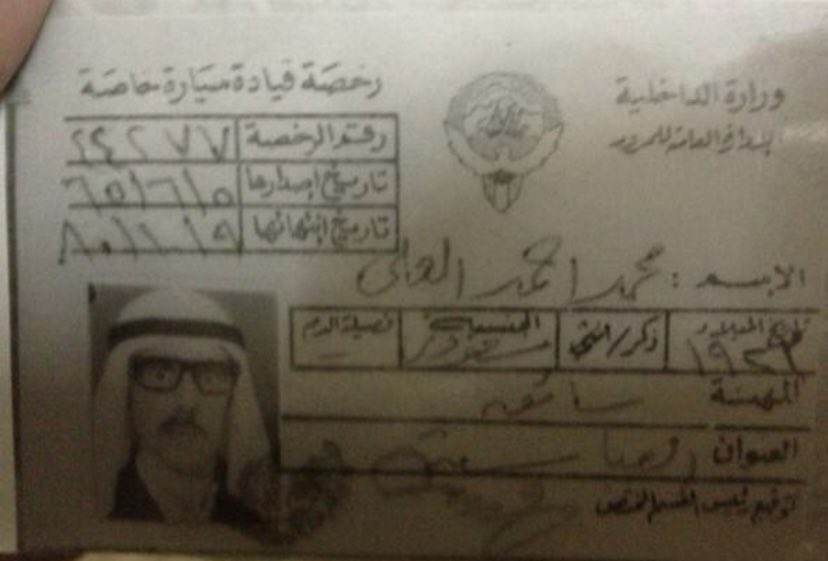 وزارة الداخلية
الإدارة العامة للمرور
رخصة قيادة سيارة خاصة
رقم الرخصة ٢٤٢٧٧
تاريخ إصدارها ٦٥/٦/٥
تاريخ إنتهائها
الاسم : محمد احمد
تاريخ الميلاد ذكر/انثى الجنسية فصيلة الدم
سعودي
المهنة سائق
العنوان
توقيع رئيس القسم المختص